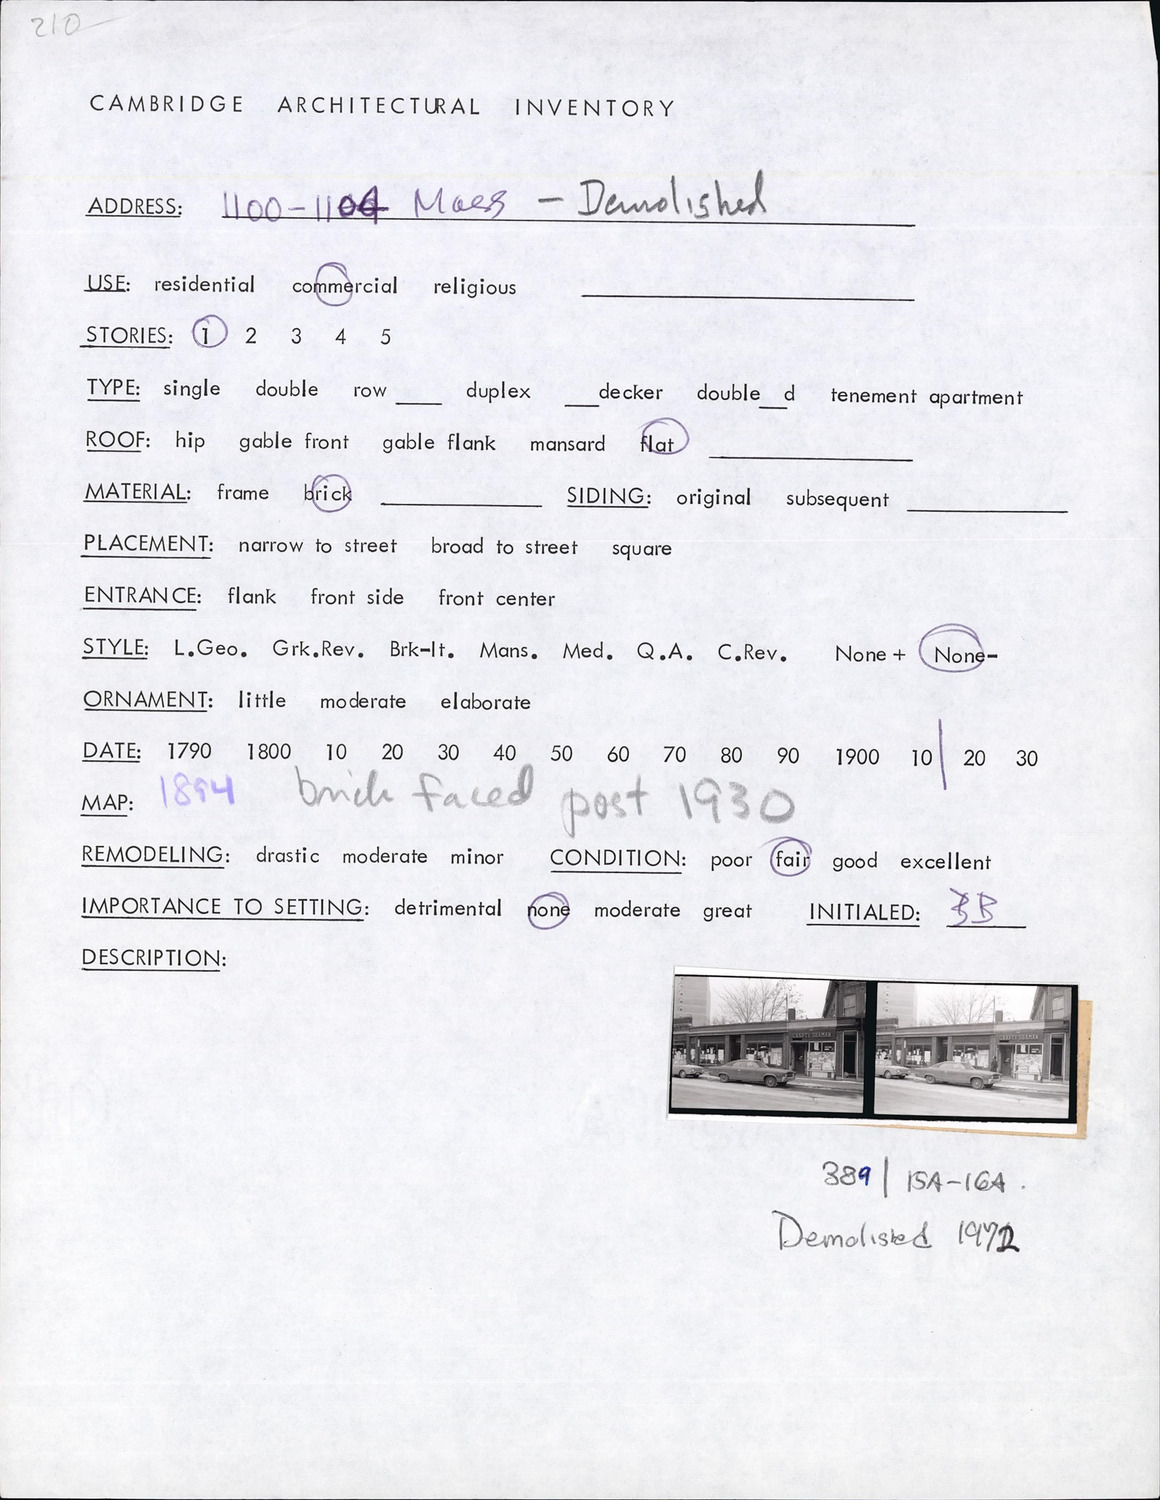 210
CAMBRIDGE ARCHITECTURAL INVENTORY
ADDRESS: 1100-1104 Mass - Demolished
USE: residential commercial religious
STORIES: 1 2 3 4 5
TYPE: single double row ___ duplex ___decker double___d tenement apartment
ROOF: hip gable front gable flank mansard flat
MATERIAL: frame brick SIDING: original subsequent
PLACEMENT: narrow to street broad to street square
ENTRANCE: flank front side front center
STYLE: L.Geo. Grk.Rev. Brk-It. Mans. Med. Q.A. C.Rev. None + None-
ORNAMENT: little moderate elaborate
DATE: 1790 1800 10 20 30 40 50 60 70 80 90 1900 10 | 20 30
MAP: 1894 brick faced post 1930
REMODELING: drastic moderate minor CONDITION: poor fair good excellent
IMPORTANCE TO SETTING: detrimental none moderate great INITIALED: BB
DESCRIPTION:
389 | 15A-16A.
Demolished 1972